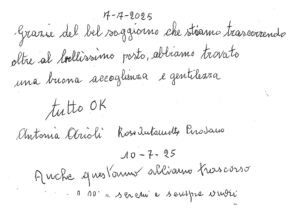 7-7-2025
Grazie del bel soggiorno che stiamo trascorrendo
oltre al bellissimo posto, abbiamo trovato
una buona accoglienza e gentilezza
tutto OK
Antonia Arioli
10-7-25
Anche quest'anno abbiamo trascorso
sereni e sempre